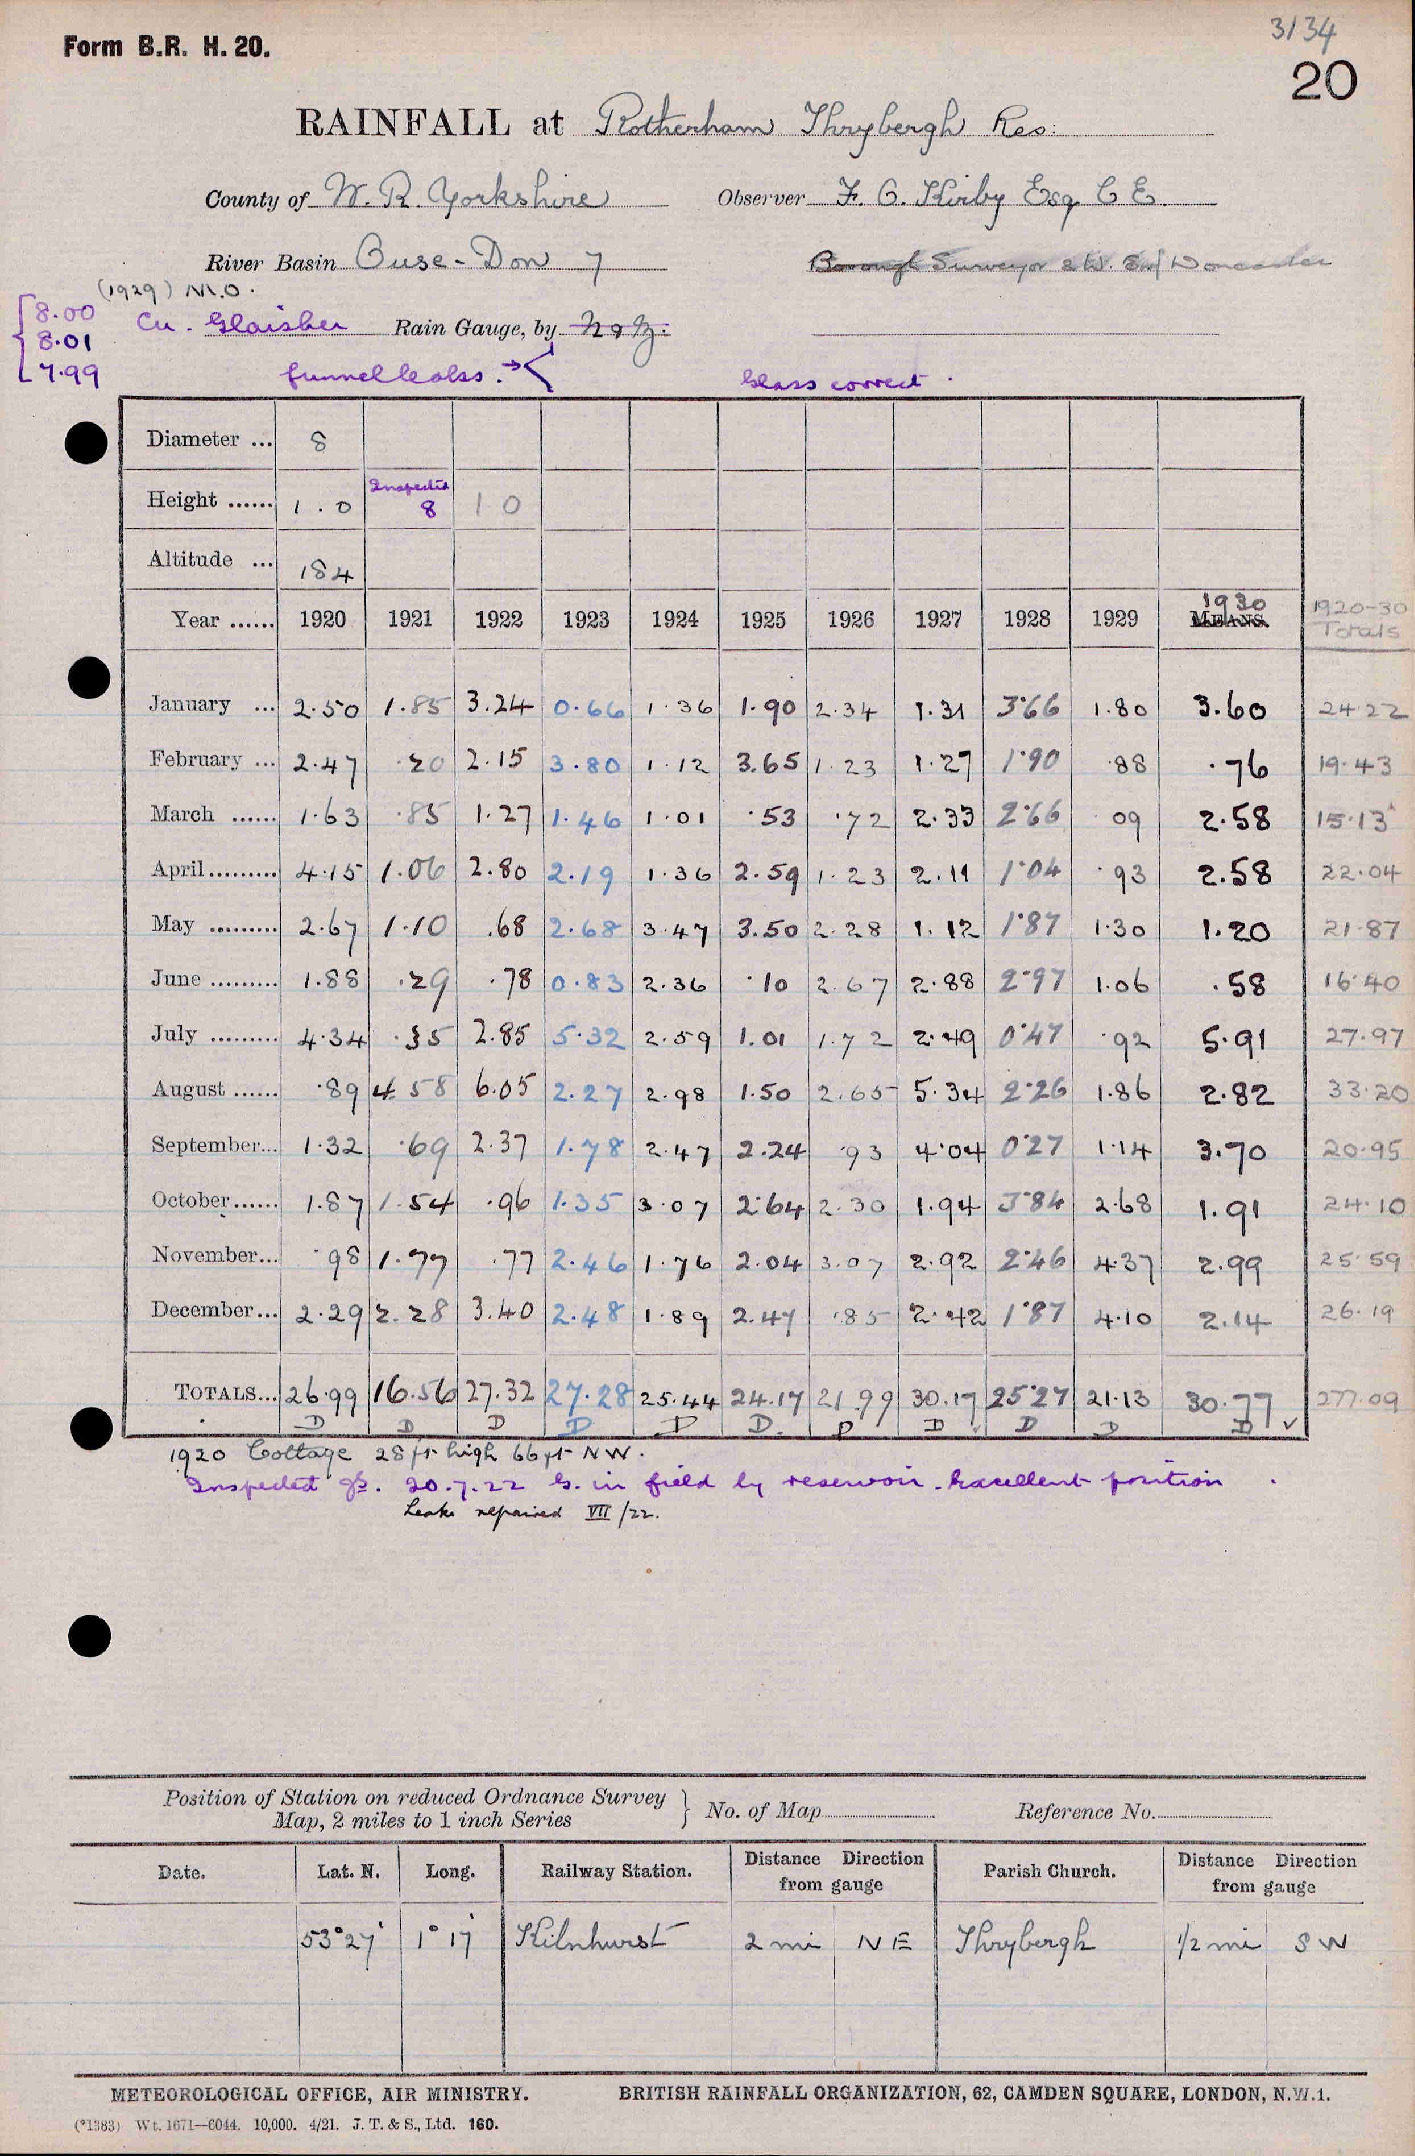 3134
Form B.R. H. 20.
20
RAINFALL at Rotherham Thrybergh Res:
County of W. R. Yorkshire Observer F. G. Kirby Esq C E.
River Basin Ouse - Don 7 Borough Surveyor & W. Doncaster
(1929) M.O.
8.00
8.01
7.99
Cu. Glaisher Rain Gauge, by
funnel leaks. → Glass correct.
Diameter ... 8
Height ...... 1.0 Inspected 8 10
Altitude ... 184
Year ...... 1920 1921 1922 1923 1924 1925 1926 1927 1928 1929 1930 MEANS. 1920-30 Totals
January ... 2.50 1.85 3.24 0.66 1.36 1.90 2.34 1.31 3.66 1.80 3.60 24.22
February ... 2.47 .20 2.15 3.80 1.12 3.65 1.23 1.27 1.90 .88 .76 19.43
March ...... 1.63 .85 1.27 1.46 1.01 .53 .72 2.33 2.66 09 2.58 15.13
April......... 4.15 1.06 2.80 2.19 1.36 2.59 1.23 2.11 1.04 .93 2.58 22.04
May ......... 2.67 1.10 .68 2.68 3.47 3.50 2.28 1.12 1.87 1.30 1.20 21.87
June ......... 1.88 .29 .78 0.83 2.36 .10 2.67 2.88 2.97 1.06 .58 16.40
July ......... 4.34 .35 2.85 5.32 2.59 1.01 1.72 2.49 0.47 .92 5.91 27.97
August ...... .89 4.58 6.05 2.27 2.98 1.50 2.65 5.34 2.26 1.86 2.82 33.20
September... 1.32 .69 2.37 1.78 2.47 2.24 .93 4.04 0.27 1.14 3.70 20.95
October...... 1.87 1.54 .96 1.35 3.07 2.64 2.30 1.94 3.84 2.68 1.91 24.10
November... .98 1.77 .77 2.46 1.76 2.04 3.07 2.92 2.46 4.37 2.99 25.59
December... 2.29 2.28 3.40 2.48 1.89 2.47 .85 2.42 1.87 4.10 2.14 26.19
TOTALS... 26.99 16.56 27.32 27.28 25.44 24.17 21.99 30.17 25.27 21.13 30.77 277.09
D D D D D D D D D D D ✓
1920 Cottage 28 ft high 66 ft NW.
Inspected 20.7.22 G. in field by reservoir. Excellent position.
Leaks repaired VII/22.
Position of Station on reduced Ordnance Survey Map, 2 miles to 1 inch Series } No. of Map Reference No.
Date. Lat. N. Long. Railway Station. Distance Direction from gauge Parish Church. Distance Direction from gauge
53°27' 1°17' Kilnhurst 2 mi NE Thrybergh 1/2 mi SW
METEOROLOGICAL OFFICE, AIR MINISTRY. BRITISH RAINFALL ORGANIZATION, 62, CAMDEN SQUARE, LONDON, N.W.1.
(*1383) Wt. 1671—6044. 10,000. 4/21. J. T. & S., Ltd. 160.